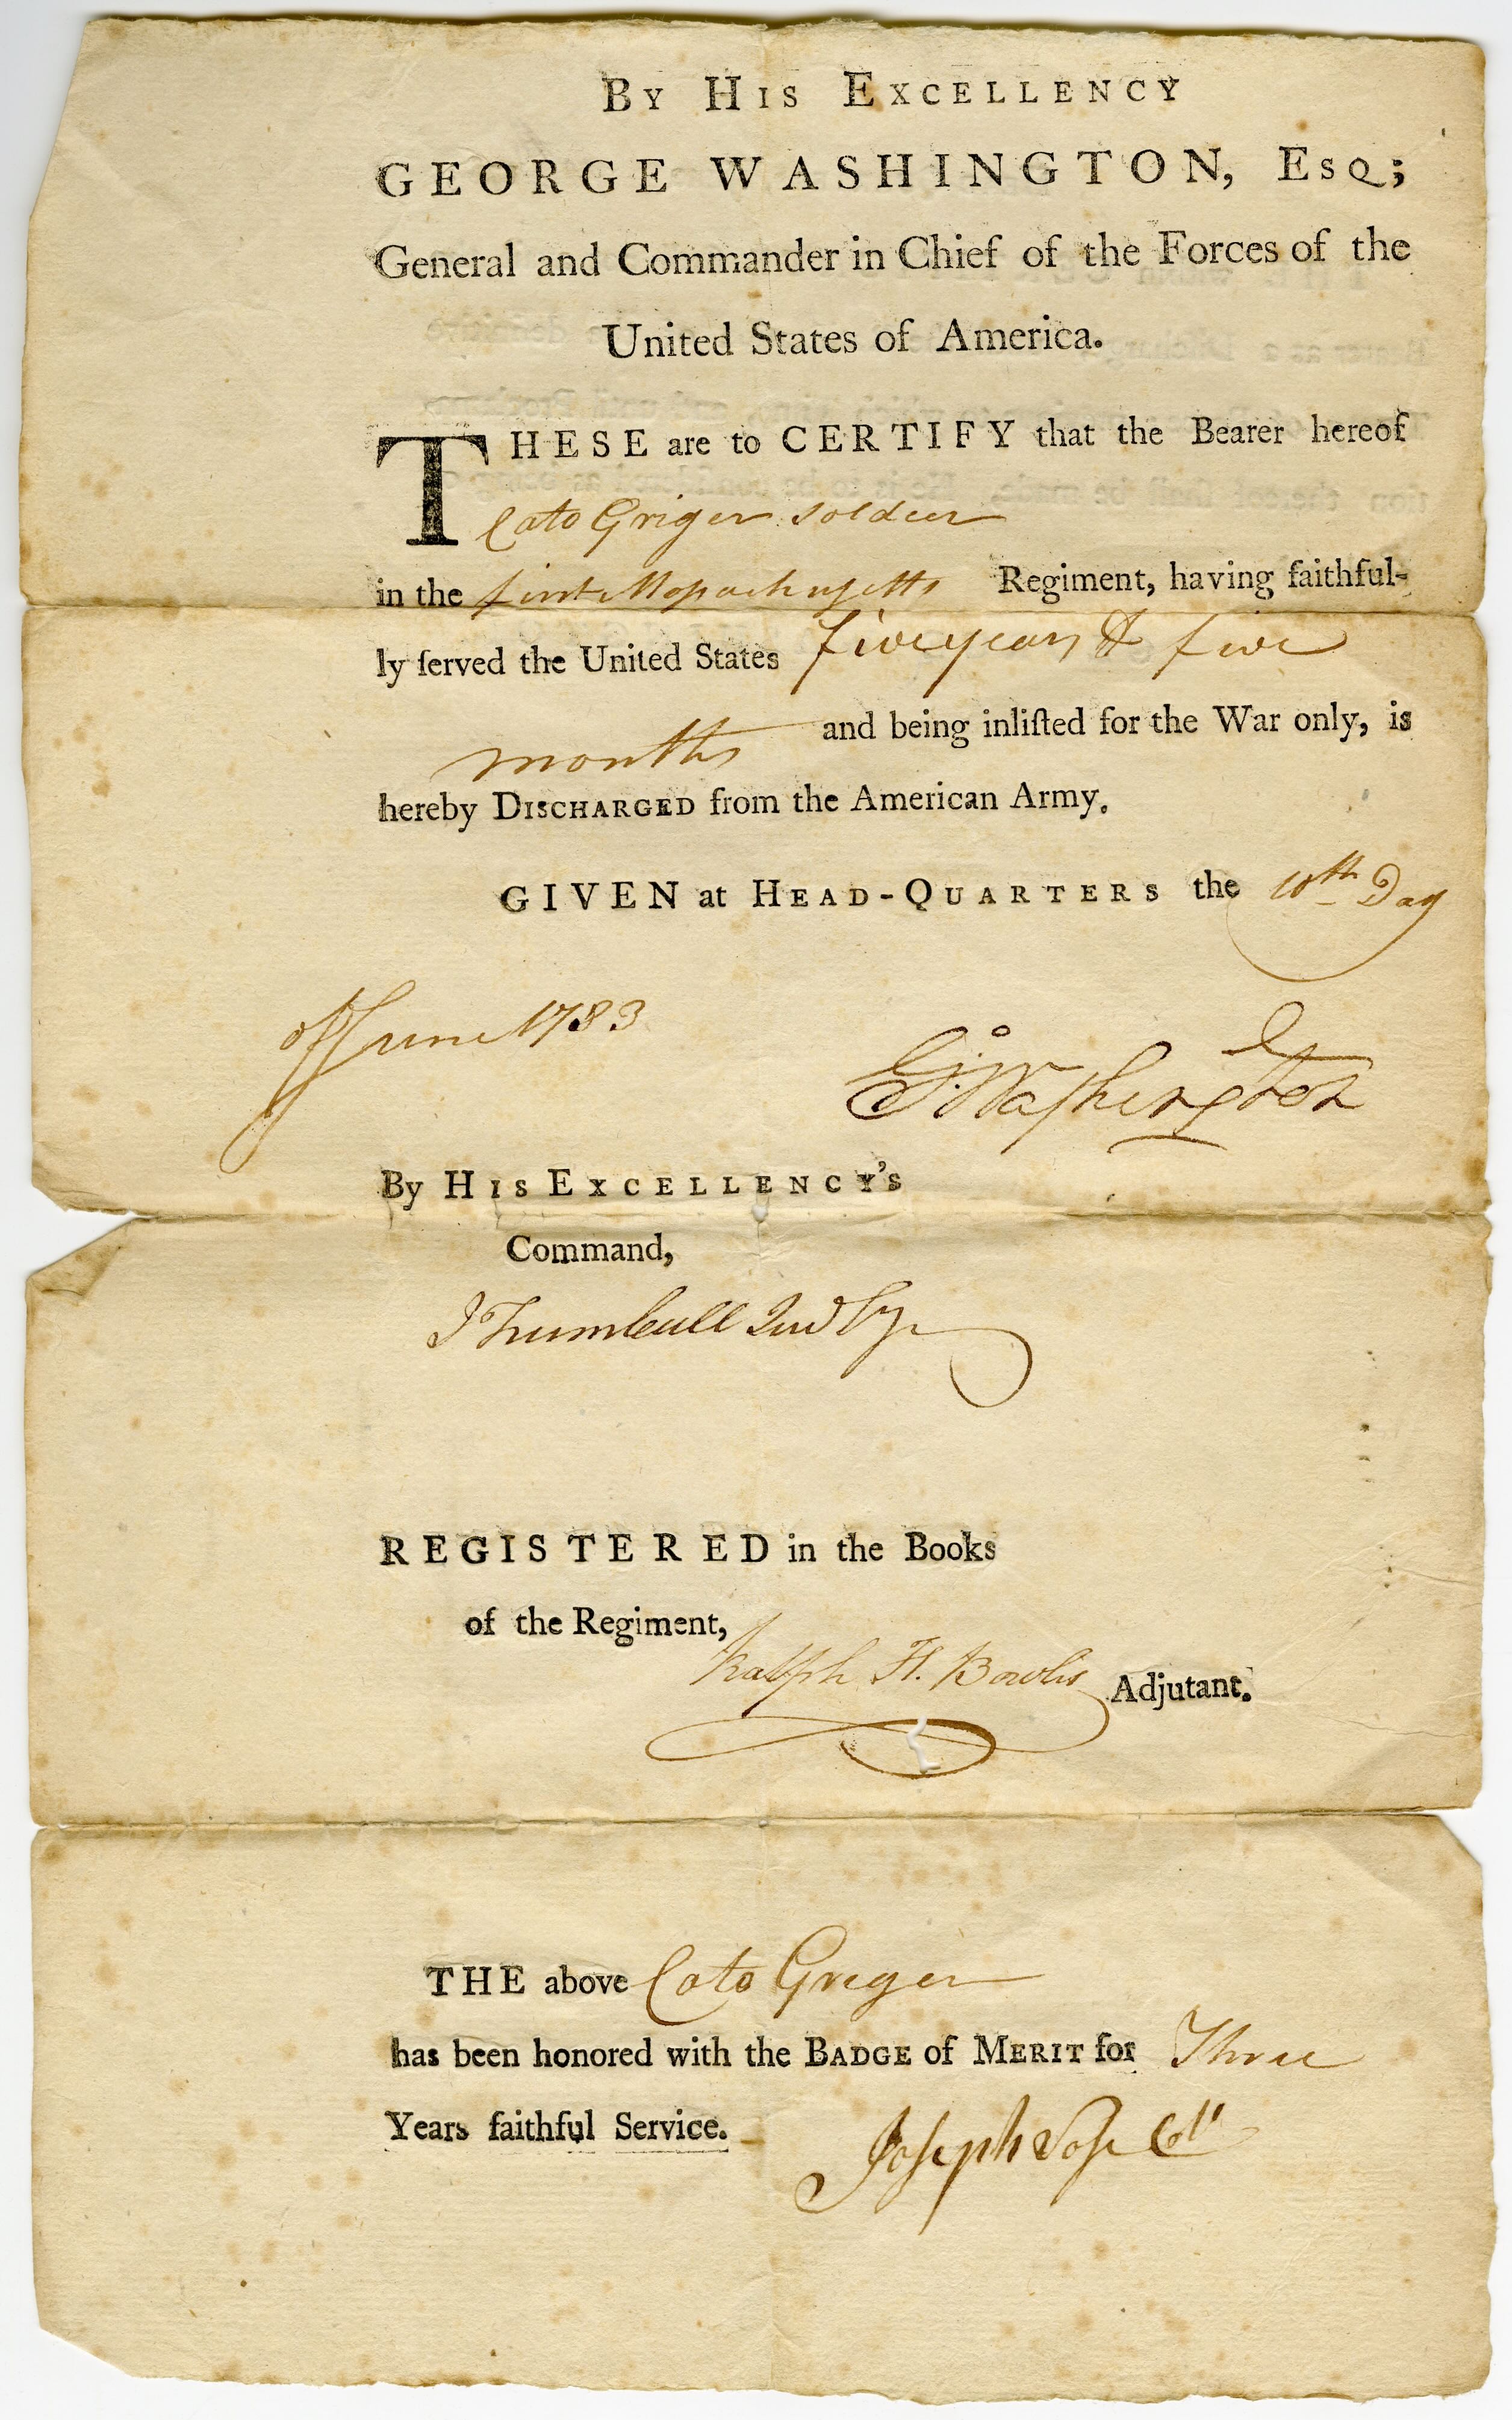 BY HIS EXCELLENCY
GEORGE WASHINGTON, ESQ;
General and Commander in Chief of the Forces of the
United States of America.
THESE are to CERTIFY that the Bearer hereof
Cato Griger soldier
in the first Massachusetts Regiment, having faithful-
ly ſerved the United States five years & five
months and being inliſted for the War only, is
hereby DISCHARGED from the American Army.
GIVEN at HEAD-QUARTERS the 10th Day
of June 1783
Go: Washington
By HIS EXCELLENCY'S
Command,
J Trumbull Jun Sy
REGISTERED in the Books
of the Regiment,
Ralph H. Bowles Adjutant.
THE above Cato Greger
has been honored with the BADGE of MERIT for Three
Years faithful Service.
Joseph Vose Coll